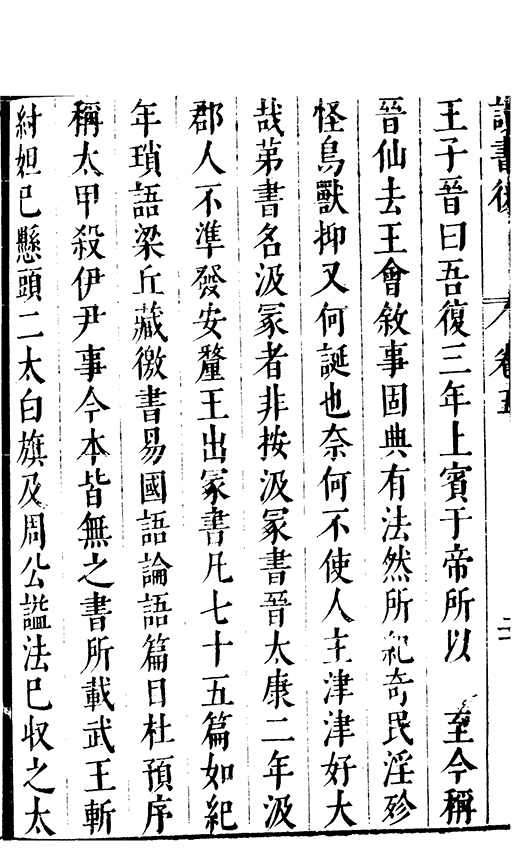 讀書後 卷五 二
王子晉曰吾復三年上賓于帝所以 至今稱
晉仙去王會敘事固典有法然所紀奇民淫殄
怪鳥獸抑又何誕也奈何不使人主津津好大
哉第書名汲冡者非按汲冡書晉太康二年汲
郡人不準發安釐王出冡書凡七十五篇如紀
年瑣語梁丘藏徼書易國語論語篇日杜預序
稱太甲殺伊尹事今本皆無之書所載武王斬
紂妲巳懸頭二太白旗及周公謚法巳收之太